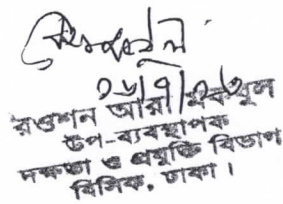 ২৬/৭/২৩
রওশন আরা মকবুল
উপ-ব্যবস্থাপক
দক্ষতা ও প্রযুক্তি বিভাগ
বিসিক, ঢাকা।